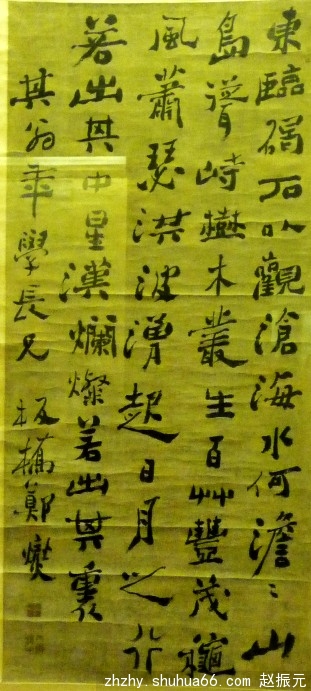 東臨碣石以觀滄海水何澹〻山
島竦峙樹木叢生百艸豐茂龝
風蕭瑟洪波湧起日月之行
若出其中星漢爛燦若出其裏
其翁年學長兄 板橋鄭燮
zhzhy.shuhua66.com 赵振元